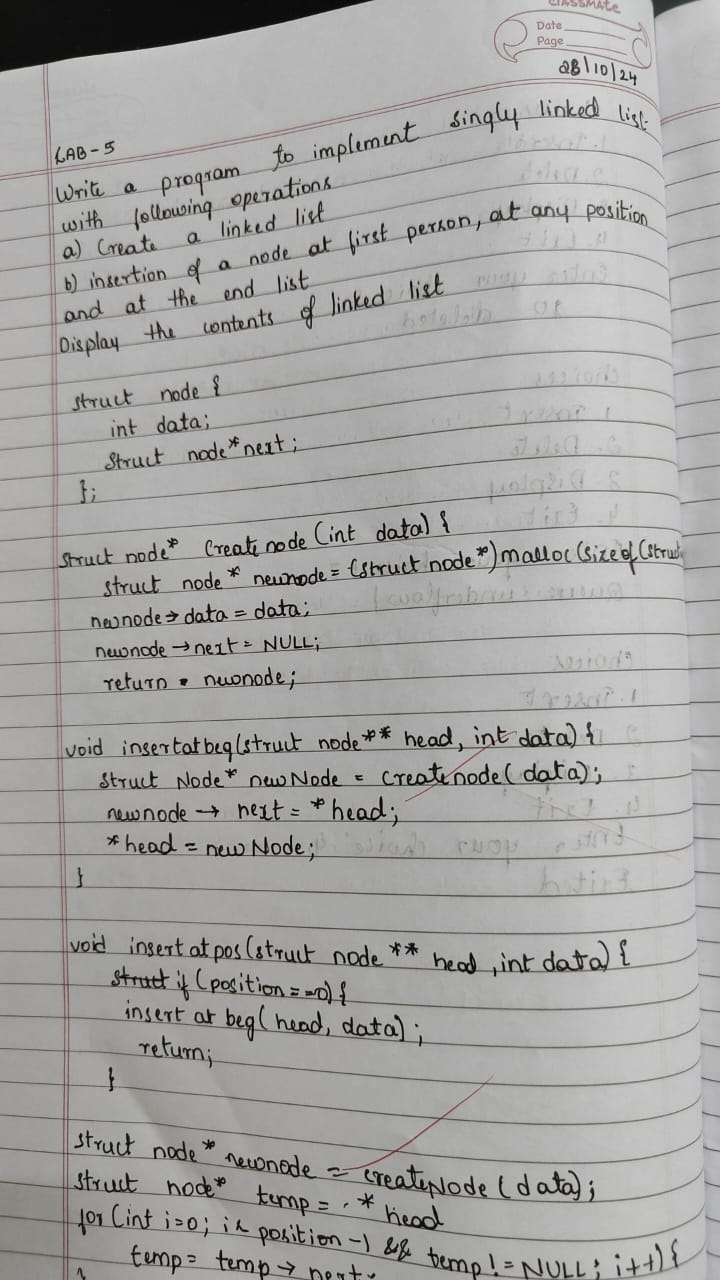 classmate
Date
Page
28/10/24
LAB-5
Write a program to implement singly linked list
with following operations
a) Create a linked list
b) insertion of a node at first person, at any position
and at the end list
Display the contents of linked list
struct node {
int data;
struct node* next;
};
struct node* Createnode (int data) {
struct node* newnode = (struct node*) malloc (sizeof (struct
newnode → data = data;
newnode → next = NULL;
return newnode;
void insertatbeg(struct node** head, int data) {
struct Node* newNode = createnode( data);
newnode → next = *head;
*head = newNode;
}
void insert at pos (struct node ** head , int data) {
struct if (position == 0) {
insert at beg( head, data);
return;
}
struct node * newnode = createNode (data);
struct node* temp = * head
for (int i=0; i< position -1 && temp != NULL; i++) {
temp = temp → next;